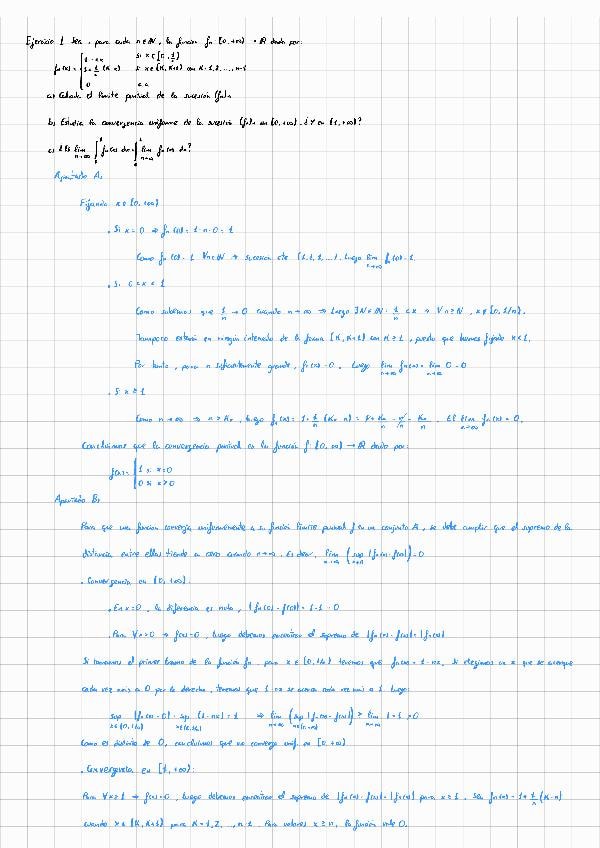 Ejercicio 1 Sea, para cada n∈ℕ, la función fn: [0,+∞) → ℝ dada por:
fn(x) = { 1-nx si x∈[0,1/n)
1+1/n (K-n) si x∈[K,K+1) con K=1,2,...,n-1
0 e.c.
a) Calcula el límite puntual de la sucesión (fn)n
b) Estudia la convergencia uniforme de la sucesión (fn)n en [0,+∞). ¿Y en [1,+∞)?
c) ¿Es lim n→∞ ∫ fn(x) dx = ∫ lim n→∞ fn(x) dx?
Apartado A:
Fijando x∈[0,+∞)
. Si x=0 ⇒ fn(0) = 1-n·0 = 1
Como fn(0)=1 ∀n∈ℕ → sucesión cte {1,1,1,...}. Luego lim n→∞ fn(0)=1.
. Si 0<x<1
Como sabemos que 1/n → 0 cuando n→∞ ⇒ Luego ∃N∈ℕ : 1/n < x → ∀n≥N, x∉[0,1/n).
Tampoco estará en ningún intervalo de la forma [K,K+1) con K≥1, puesto que hemos fijado x<1.
Por tanto, para n suficientemente grande, fn(x)=0. Luego lim n→∞ fn(x) = lim n→∞ 0 = 0
. Si x≥1
Como n→∞ ⇒ n>Kx, luego fn(x) = 1+1/n (Kx-n) = 1+Kx/n - n/n = Kx/n. El lim n→∞ fn(x)=0.
Concluimos que la convergencia puntual es la función f:[0,∞)→ℝ dada por:
f(x) = { 1 si x=0
0 si x>0
Apartado B:
Para que una función converja uniformemente a su función límite puntual f en un conjunto A, se debe cumplir que el supremo de la
distancia entre ellas tiende a cero cuando n→∞. Es decir, lim n→∞ (sup x∈A |fn(x)-f(x)|)=0
. Convergencia en [0,+∞):
. En x=0, la diferencia es nula, |fn(0)-f(0)|=1-1=0
. Para ∀x>0 → f(x)=0, luego debemos encontrar el supremo de |fn(x)-f(x)|=|fn(x)|
Si tomamos el primer tramo de la función fn, para x∈(0,1/n) tenemos que fn(x)=1-nx. Si elegimos un x que se acerque
cada vez más a 0 por la derecha, tenemos que 1-nx se acerca cada vez más a 1. Luego:
sup x∈(0,1/n) |fn(x)-0| = sup x∈(0,1/n) (1-nx)=1 ⇒ lim n→∞ (sup |fn(x)-f(x)|) ≥ lim n→∞ 1=1>0
Como es distinto de 0, concluimos que no converge unif. en [0,+∞)
. Convergencia en [1,+∞):
Para ∀x≥1 → f(x)=0, luego debemos encontrar el supremo de |fn(x)-f(x)|=|fn(x)| para x≥1. Sea fn(x)=1+1/n (K-n)
cuando x∈[K,K+1) para K=1,2,...,n-1. Para valores x≥n, la función vale 0.